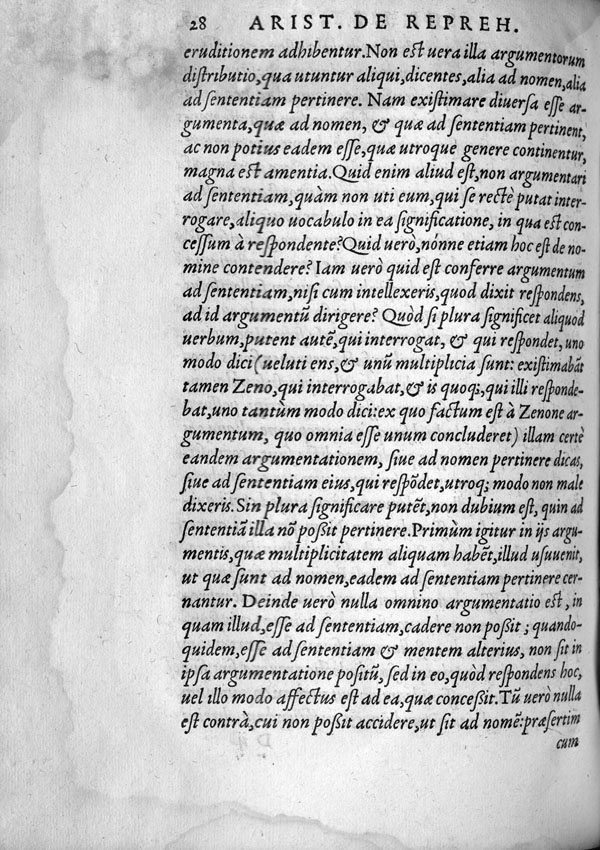 28 ARIST. DE REPREH.
eruditionem adhibentur. Non est uera illa argumentorum
distributio, qua utuntur aliqui, dicentes, alia ad nomen, alia
ad sententiam pertinere. Nam existimare diuersa esse ar-
gumenta, quæ ad nomen, & quæ ad sententiam pertinent,
ac non potius eadem esse, quæ utroque genere continentur,
magna est amentia. Quid enim aliud est, non argumentari
ad sententiam, quàm non uti eum, qui se rectè putat inter-
rogare, aliquo uocabulo in ea significatione, in qua est con-
cessum à respondente? Quid uerò, nónne etiam hoc est de no-
mine contendere? Iam uerò quid est conferre argumentum
ad sententiam, nisi cum intellexeris, quod dixit respondens,
ad id argumentũ dirigere? Quòd si plura significet aliquod
uerbum, putent autẽ, qui interrogat, & qui respondet, uno
modo dici (ueluti ens, & unũ multiplicia sunt: existimabãt
tamen Zeno, qui interrogabat, & is quoq;, qui illi responde-
bat, uno tantùm modo dici: ex quo factum est à Zenone ar-
gumentum, quo omnia esse unum concluderet) illam certè
eandem argumentationem, siue ad nomen pertinere dicas,
siue ad sententiam eius, qui respõdet, utroq; modo non male
dixeris. Sin plura significare putẽt, non dubium est, quin ad
sententiã illa nõ poßit pertinere. Primùm igitur in ijs argu-
mentis, quæ multiplicitatem aliquam habẽt, illud usuuenit,
ut quæ sunt ad nomen, eadem ad sententiam pertinere cer-
nantur. Deinde uerò nulla omnino argumentatio est, in
quam illud, esse ad sententiam, cadere non poßit; quando-
quidem, esse ad sententiam & mentem alterius, non sit in
ipsa argumentatione positũ, sed in eo, quòd respondens hoc,
uel illo modo affectus est ad ea, quæ conceßit. Tũ uerò nulla
est contrà, cui non poßit accidere, ut sit ad nomẽ: præsertim
cum